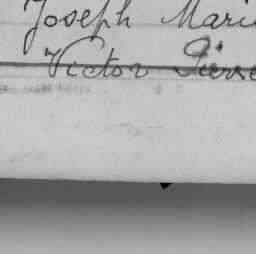 Joseph Marie
Victor Pierre